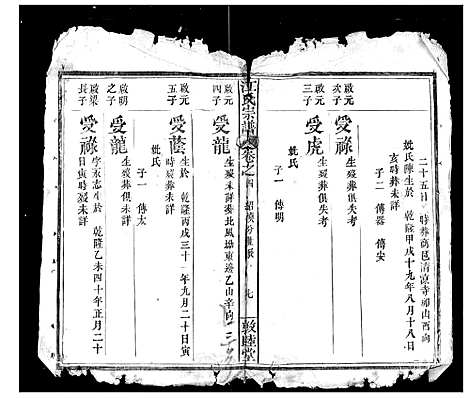 二十五日 時葬商邑清涼寺 卯山酉向
妣氏陳生於 乾隆甲戌十九年八月十八日
亥時葬未詳
子二 傳器 傳安
啟元
次子
受祿
生歿葬俱失考
啟元
三子
受虎
生歿葬俱失考
妣氏
子一 傳明
江氏宗譜
卷之四
七
敦睦堂
啟元
四子
受龍
生歿未詳葬北風坳東邊乙山辛向
啟元
五子
受蔭
生於 乾隆丙戌三十一年九月二十日寅
時歿葬未詳
妣氏
子一 傳太
啟明
之子
受龍
生歿葬俱失考
啟梁
長子
受祿
字永志生於 乾隆乙未四十年正月二十
日寅時歿未詳